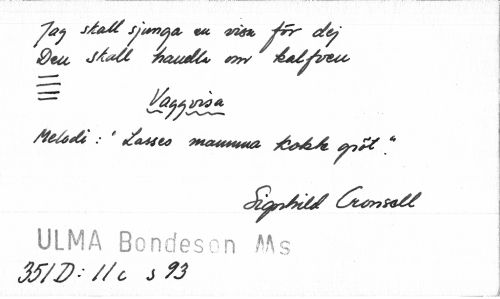 Jag skall sjunga en visa för dej
Den skall handla om kalfven
Vaggvisa
Melodi: "Lasses mamma kokk gröt".
Sigrhild Cronsell
ULMA Bondeson Ms
351D: 11c s 93